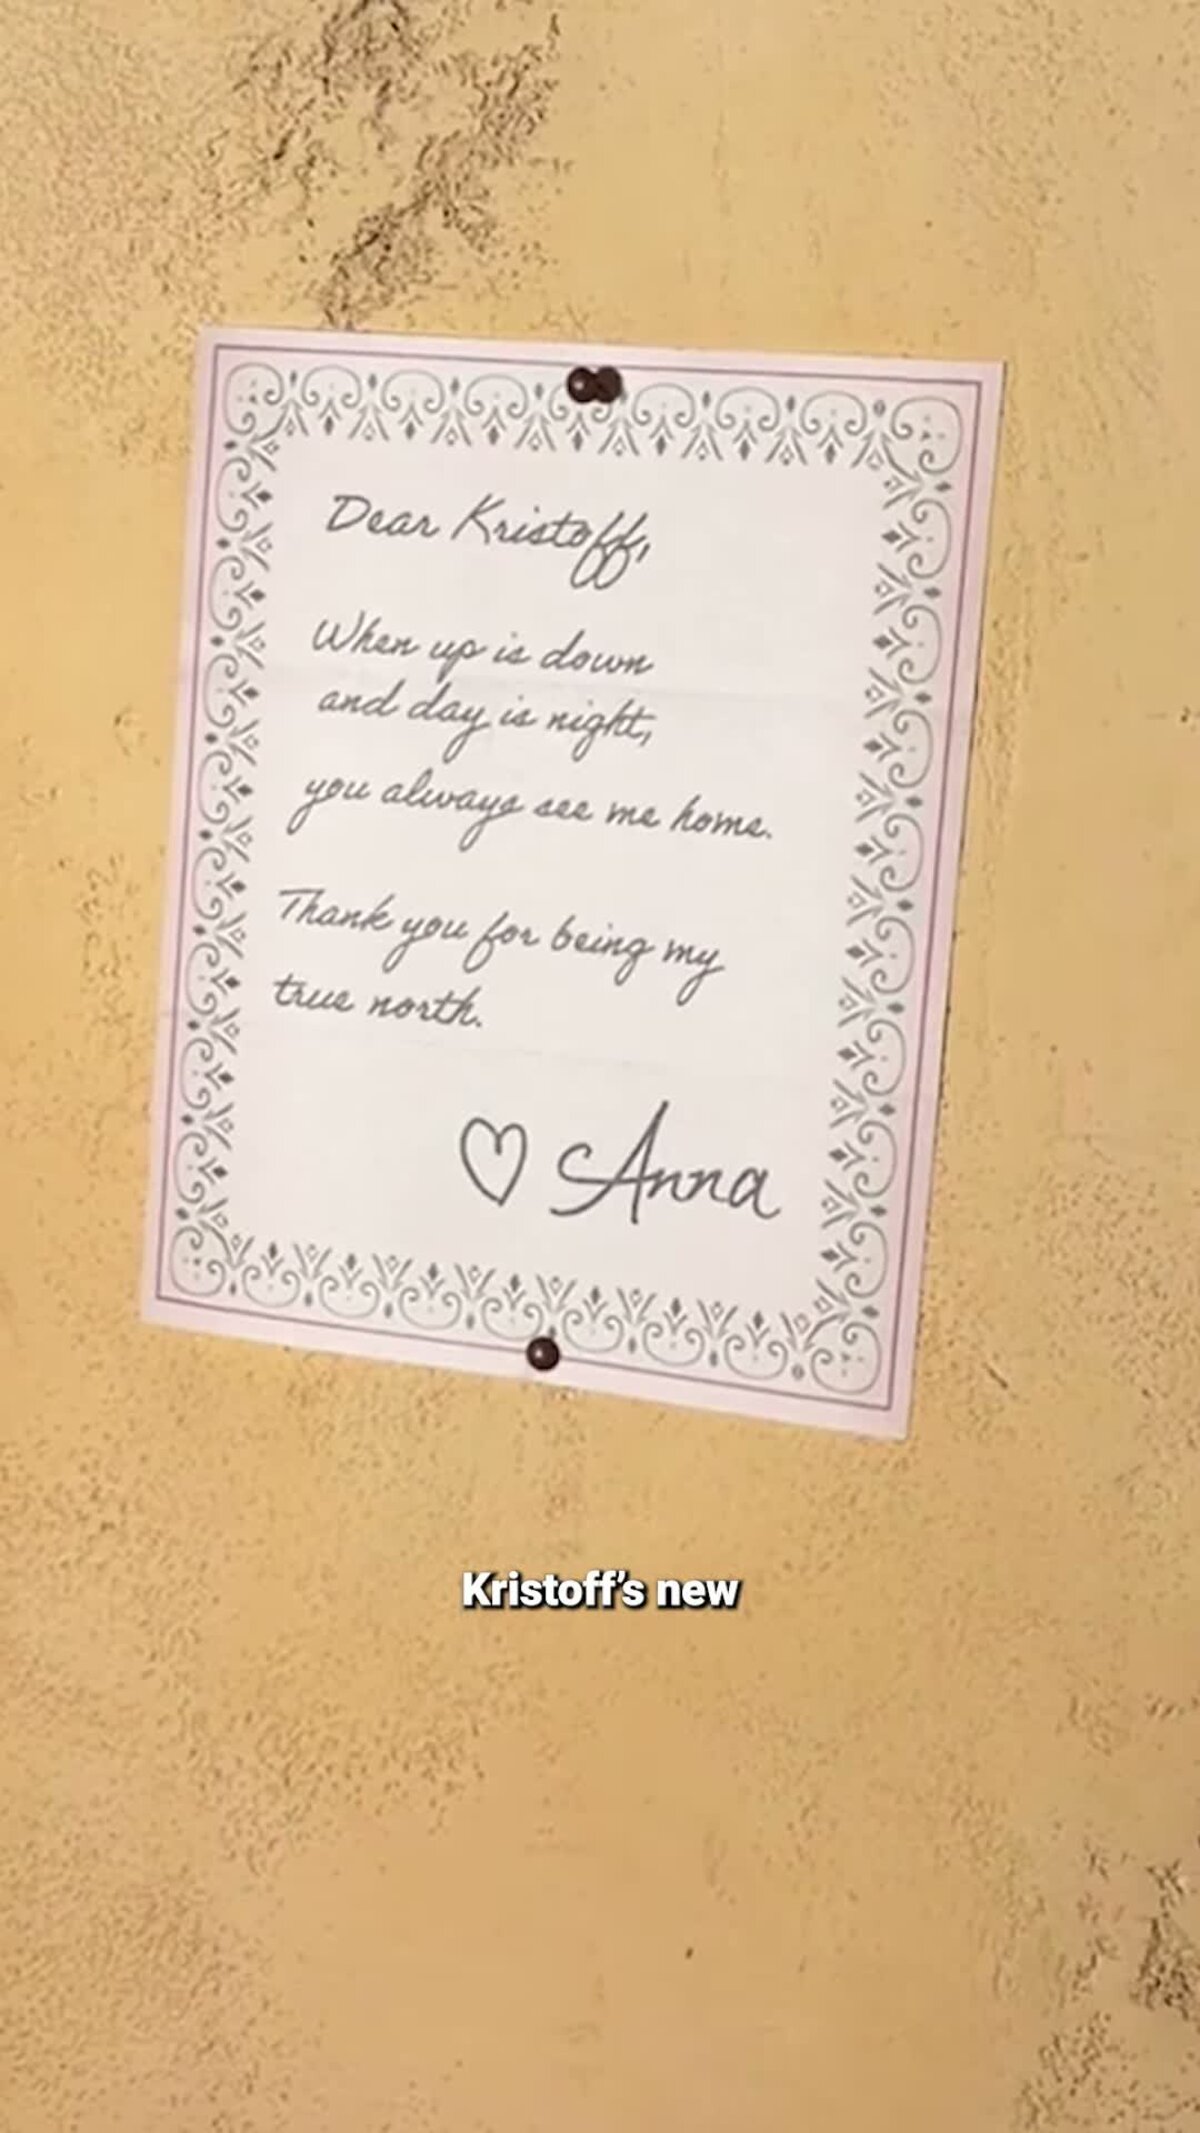 Dear Kristoff,
When up is down
and day is night,
you always see me home.
Thank you for being my
true north.
♡ Anna
Kristoff's new